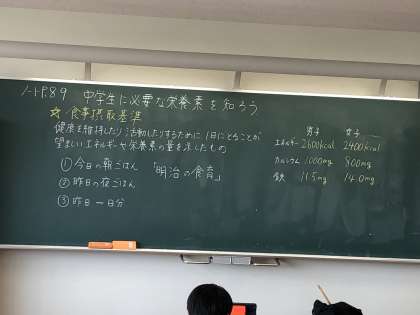 ノートP.89 中学生に必要な栄養素を知ろう
☆食事摂取基準
健康を維持したり活動したりするために、1日にとることが
望ましいエネルギーや栄養素の量を示したもの
①今日の朝ごはん 「明治の食育」
②昨日の夜ごはん
③昨日一日分
男子 女子
エネルギー 2600kcal 2400kcal
カルシウム 1000mg 800mg
鉄 11.5mg 14.0mg